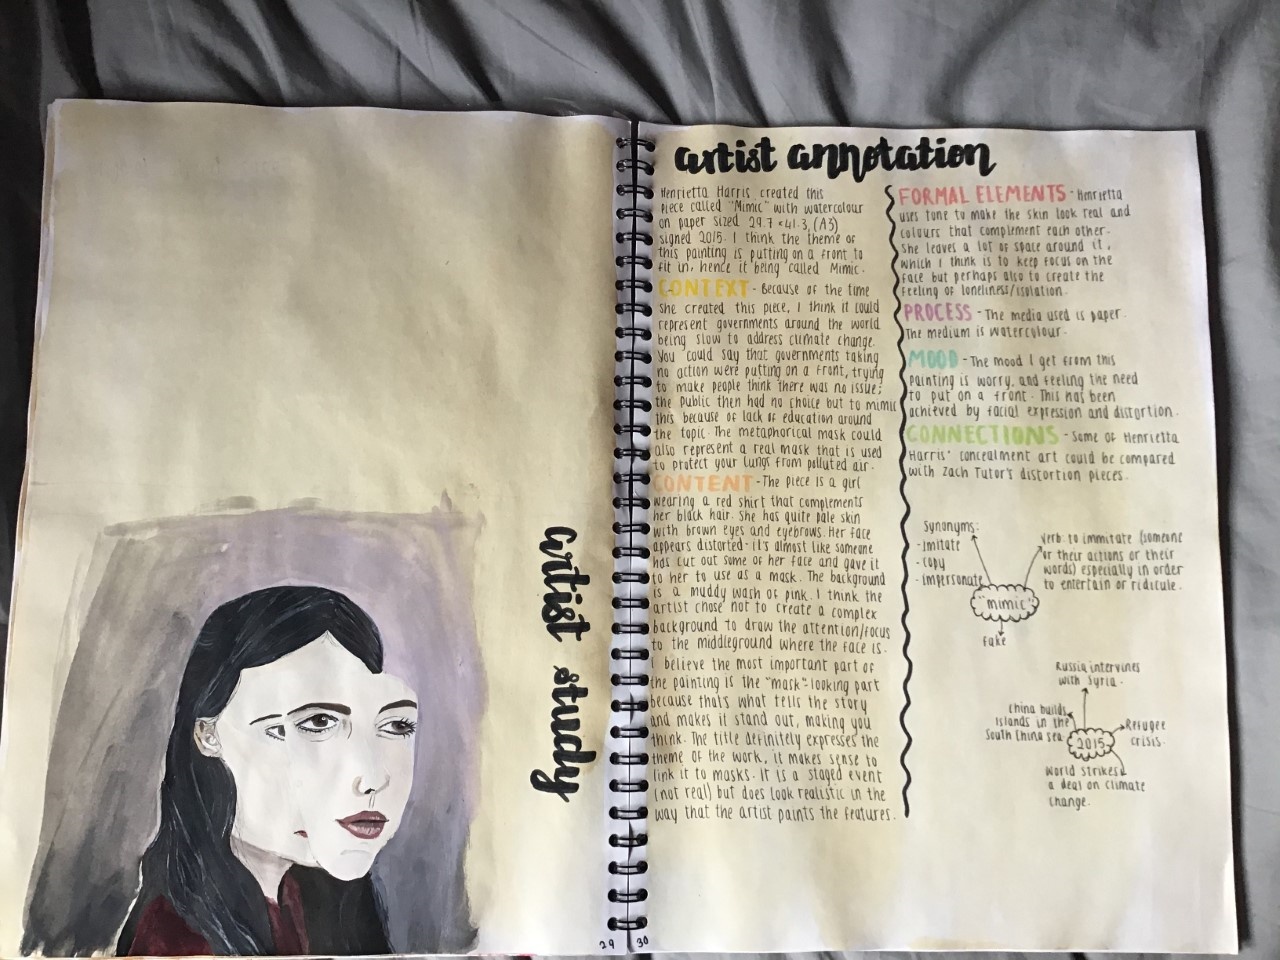 artist study
29
artist annotation
Henrietta Harris created this
piece called "Mimic" with watercolour
on paper sized 29.7 × 41.3, (A3)
signed 2015. I think the theme of
this painting is putting on a front to
fit in, hence it being called Mimic.
CONTEXT - Because of the time
she created this piece, I think it could
represent governments around the world
being slow to address climate change.
You could say that governments taking
no action were putting on a front, trying
to make people think there was no issue;
the public then had no choice but to mimic
this because of lack of education around
the topic. The metaphorical mask could
also represent a real mask that is used
to protect your lungs from polluted air.
CONTENT - The piece is a girl
wearing a red shirt that complements
her black hair. She has quite pale skin
with brown eyes and eyebrows. Her face
appears distorted - it's almost like someone
has cut out some of her face and gave it
to her to use as a mask. The background
is a muddy wash of pink. I think the
artist chose not to create a complex
background to draw the attention/focus
to the middleground where the face is.
I believe the most important part of
the painting is the "mask"-looking part
because that's what tells the story
and makes it stand out, making you
think. The title definitely expresses the
theme of the work, it makes sense to
link it to masks. It is a staged event
(not real) but does look realistic in the
way that the artist paints the features.
FORMAL ELEMENTS - Henrietta
uses tone to make the skin look real and
colours that complement each other.
She leaves a lot of space around it,
which I think is to keep focus on the
face but perhaps also to create the
feeling of loneliness/isolation.
PROCESS - The media used is paper.
The medium is watercolour.
MOOD - The mood I get from this
painting is worry, and feeling the need
to put on a front. This has been
achieved by facial expression and distortion.
CONNECTIONS - Some of Henrietta
Harris' concealment art could be compared
with Zach Tutor's distortion pieces.
Synonyms:
- imitate
- copy
- impersonate
verb: to immitate (someone
or their actions or their
words) especially in order
to entertain or ridicule.
"mimic"
fake
Russia intervines
with Syria.
China builds
islands in the
South China sea.
Refugee
crisis.
2015
World strikes
a deal on climate
change.
30